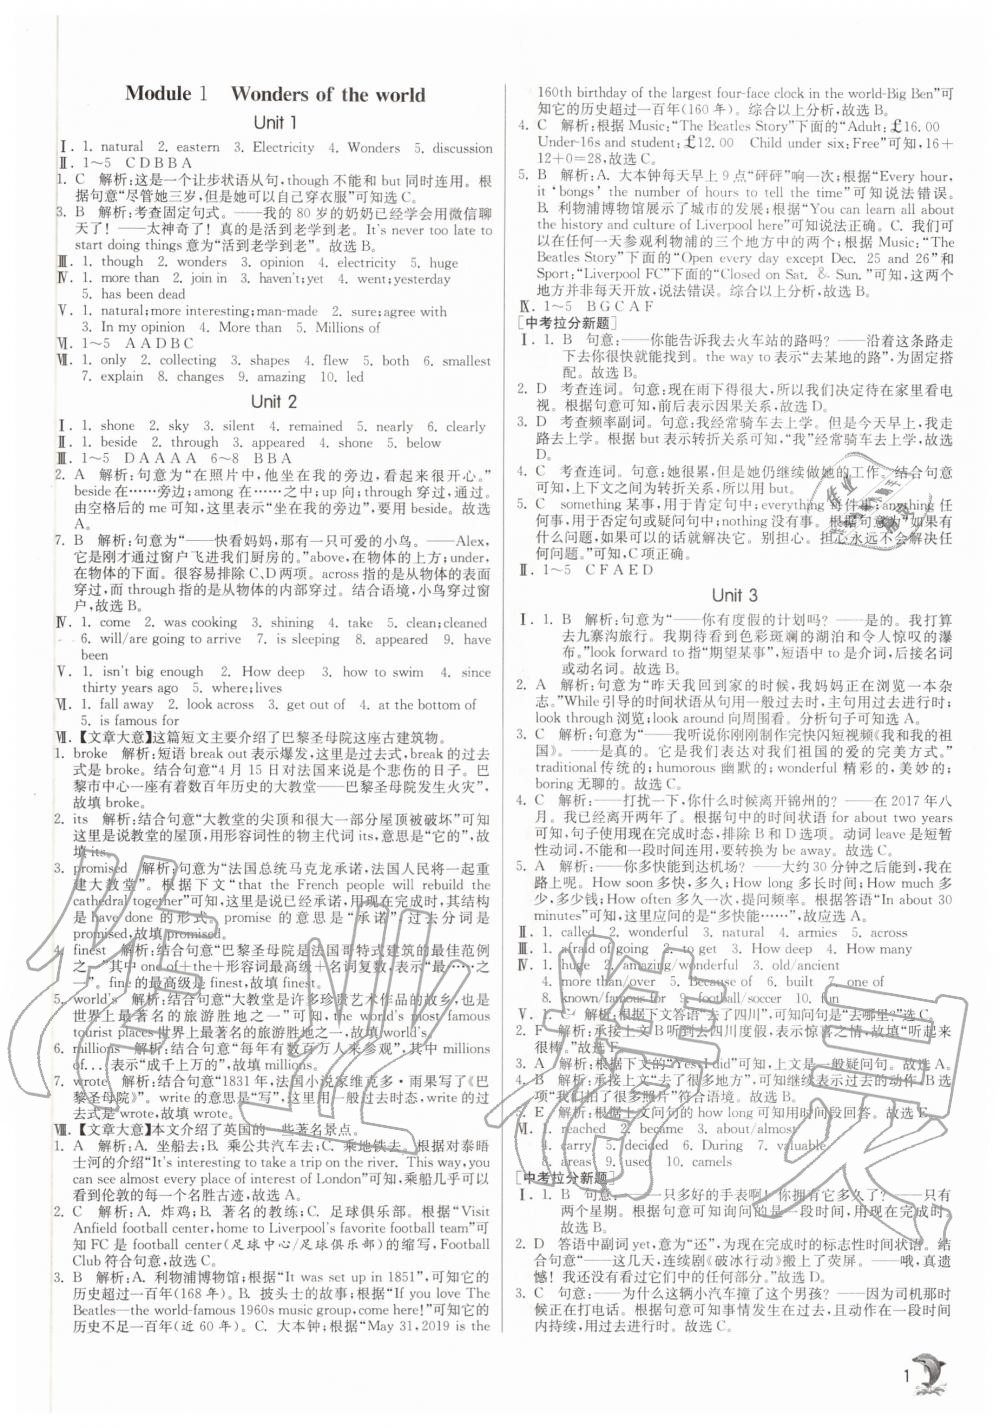 Module 1 Wonders of the world
Unit 1
Ⅰ. 1. natural 2. eastern 3. Electricity 4. Wonders 5. discussion
Ⅱ. 1～5 CDBBA
1. C 解析:这是一个让步状语从句,though不能和but同时连用。根
据句意“尽管她三岁,但是她可以自己穿衣服”可知选C。
3. B 解析:考查固定句式。——我的80岁的奶奶已经学会用微信聊
天了！——太神奇了！真的是活到老学到老。It's never too late to
start doing things意为“活到老学到老”。故选B。
Ⅲ. 1. though 2. wonders 3. opinion 4. electricity 5. huge
Ⅳ. 1. more than 2. join in 3. haven't;yet 4. went;yesterday
5. has been dead
Ⅴ. 1. natural;more interesting;man-made 2. sure;agree with
3. In my opinion 4. More than 5. Millions of
Ⅵ. 1～5 AADBC
Ⅶ. 1. only 2. collecting 3. shapes 4. flew 5. both 6. smallest
7. explain 8. changes 9. amazing 10. led
Unit 2
Ⅰ. 1. shone 2. sky 3. silent 4. remained 5. nearly 6. clearly
Ⅱ. 1. beside 2. through 3. appeared 4. shone 5. below
Ⅲ. 1～5 DAAAA 6～8 BBA
2. A 解析:句意为“在照片中,他坐在我的旁边,看起来很开心。”
beside在……旁边;among在……之中;up向;through穿过。
由空格后的me可知,这里表示“坐在我的旁边”,要用beside。故选
A。
7. B 解析:句意为“——快看妈妈,那有一只可爱的小鸟。——Alex,
它是刚才通过窗户飞进我们厨房的。”above,在物体的上方;under,
在物体的下面。很容易排除C、D两项。across指是从物体的表面
穿过,而through指是从物体的内部穿过。结合语境,小鸟穿过窗
户,故选B。
Ⅳ. 1. come 2. was cooking 3. shining 4. take 5. clean;cleaned
6. will/are going to arrive 7. is sleeping 8. appeared 9. have
been
Ⅴ. 1. isn't big enough 2. How deep 3. how to swim 4. since
thirty years ago 5. where;lives
Ⅵ. 1. fall away 2. look across 3. get out of 4. at the bottom of
5. is famous for
Ⅶ. 【文章大意】这篇短文主要介绍了巴黎圣母院这座古建筑物。
1. broke 解析:短语break out表示爆发,这里是过去式,break的过去
式是broke。结合句意“4月15日对法国来说是个悲伤的日子。巴
黎市中心一座有着数百年历史的大教堂——巴黎圣母院发生火灾”,
故填broke。
2. its 解析:结合句意“大教堂的尖顶和很大一部分屋顶被破坏”可知
这里是说教堂的屋顶,用形容词性的物主代词its,意思是“它的”,故
填its。
3. promised 解析:句意为“法国总统马克龙承诺,法国人民将一起重
建大教堂”。根据下文“that the French people will rebuild the
cathedral together”可知这里是说已经承诺,用现在完成时,其结构
是have done的形式。promise的意思是“承诺”,过去分词是
promised,故填promised。
4. finest 解析:结合句意“巴黎圣母院是法国哥特式建筑的最佳范例
之一”其中one of+the+形容词最高级+名词复数,表示“最……之
一”。fine的最高级是finest,故填finest。
5. world's 解析:结合句意“大教堂是许多珍贵艺术作品的故乡,也是
世界上最著名的旅游胜地之一”可知,这里the world's most famous
tourist places世界上最著名的旅游胜地,故填world's。
6. millions 解析:结合句意“每年有数百万人来参观”,其中millions
of...表示“成千上万的”,故填millions。
7. wrote 解析:结合句意“1831年,法国小说家维克多·雨果写了《巴
黎圣母院》”。write的意思是“写”,这里用一般过去式,write的过
去式是wrote,故填wrote。
Ⅷ. 【文章大意】本文介绍了英国的一些著名景点。
1. A 解析:A. 坐船去;B. 乘公共汽车去;C. 乘地铁去。根据对泰晤
士河的介绍“It's interesting to take a trip on the river. This way,you
can see almost every place of interest of London”可知,乘船几乎可以
看到伦敦的每一个名胜古迹,故选A。
2. C 解析:A. 炸鸡;B. 著名的教练;C. 足球俱乐部。根据“Visit
Anfield football center,home to Liverpool's favorite football team”可
知FC是football center(足球中心/足球俱乐部)的缩写,Football
Club符合句意,故选C。
3. B 解析:A. 利物浦博物馆;根据“It was set up in 1851”,可知它的
历史超过一百年(168年)。B. 披头士的故事;根据“If you love The
Beatles—the world-famous 1960s music group,come here!”可知它的
历史不足一百年(近60年)。C. 大本钟;根据“May 31,2019 is the
160th birthday of the largest four-face clock in the world-Big Ben”可
知它的历史超过一百年(160年)。综合以上分析,故选B。
4. C 解析:根据Music:“The Beatles Story”下面的“Adult:￡16.00
Under-16s and student:￡12.00 Child under six:Free”可知,16+
12+0=28,故选C。
5. B 解析:A. 大本钟每天早上9点“砰砰”响一次;根据“Every hour,
it ‘bongs’ the number of hours to tell the time”可知说法错误。
B. 利物浦博物馆展示了城市的发展;根据“You can learn all about
the history and culture of Liverpool here”可知说法正确。C. 我们可
以在任何一天参观利物浦的三个地方中的两个;根据Music:“The
Beatles Story”下面的“Open every day except Dec. 25 and 26”和
Sport:“Liverpool FC”下面的“Closed on Sat. & Sun.”可知,这两个
地方并非每天开放,说法错误。综合以上分析,故选B。
Ⅸ. 1～5 BGCAF
[中考拉分新题]
Ⅰ. 1. B 句意:——你能告诉我去火车站的路吗？——沿着这条路走
下去你很快就能找到。the way to表示“去某地的路”,为固定搭
配。故选B。
2. D 考查连词。句意:现在雨下得很大,所以我们决定待在家里看电
视。根据句意可知,前后表示因果关系,故选D。
3. D 考查频率副词。句意:我经常骑车去上学。但是今天早上,我走
路去上学。根据but表示转折关系,可知,“我”经常骑车去上学。故选
D。
4. C 考查连词。句意:她很累,但是她仍继续做她的工作。结合句意
可知,上下文之间为转折关系,所以用but。
5. C something某事,用于肯定句中;everything每件事;anything任
何事,用于否定句或疑问句中;nothing没有事。根据句意为“如果有
什么问题,如果可以的话就解决它。别担心。担心永远不会解决任何
问题。”可知,C项正确。
Ⅱ. 1～5 CFAED
Unit 3
Ⅰ. 1. B 解析:句意为“——你有度假的计划吗？——是的。我打算
去九寨沟旅行。我期待看到色彩斑斓的湖泊和令人惊叹的瀑
布。”look forward to指“期望某事”,短语中to是介词,后接名词
或动名词。故选B。
2. A 解析:句意为“昨天我回到家的时候,我妈妈正在浏览一本杂
志。”While引导的时间状语从句用一般过去时,主句用过去进行时;
look through浏览;look around向周围看。分析句子可知选A。
3. C 解析:句意为“——我听说你刚刚制作完快闪短视频《我和我的祖
国》。——是真的。它是我们表达对我们祖国的爱的完美方式。”
traditional传统的;humorous幽默的;wonderful精彩的,美妙的;
boring无聊的。故选C。
4. C 解析:——打扰一下,你什么时候离开锦州的？——在2017年八
月。我已经离开两年了。根据句中的时间状语for about two years
可知,句子使用现在完成时,排除B和D选项。动词leave是短暂
性动词,不能和一段时间连用,要转换为be away。故选C。
5. A 解析:——你多快能到达机场？——大约30分钟之后能到,我在
路上呢。How soon多快,多久;How long多长时间;How much多
少,多少钱;How often多久一次,提问频率。根据答语“In about 30
minutes”可知,这里应问的是“多快能……”,故应选A。
Ⅱ. 1. called 2. wonderful 3. natural 4. armies 5. across
Ⅲ. 1. afraid of going 2. to get 3. How deep 4. How many
Ⅳ. 1. huge 2. amazing/wonderful 3. old/ancient
4. more than/over 5. Because of 6. built 7. one of
8. known/famous for 9. football/soccer 10. fun
Ⅴ. 1. C 解析:根据下文答语“去了四川”,可知问句是“去哪里?”选C。
2. F 解析:承接上文B听到去四川度假,表示惊喜之情,故填“听起来
很棒。”故选F。
3. A 解析:根据下文的“Yes,I did”可知,上文是一般疑问句。故选A。
4. B 解析:承接上文“去了很多地方”,可知继续表示过去的动作,B选
项“我们拍了很多照片”符合语境,故选B。
5. E 解析:根据上文问句的how long可知用时间段回答。故选E。
Ⅵ. 1. reached 2. became/was 3. almost
4. carry 5. decided 6. During 7. valuable
8. areas 9. used 10. camels
[中考拉分新题]
Ⅰ. 1. B 句意:——一只多好的手表啊！你拥有它多久了？——只有
两个星期。根据句意可知询问的是一段时间,用现在完成时。
故选B。
2. D 答语中副词yet,意为“还”,为现在完成时的标志性时间状语。结
合句意“——这几天,连续剧《破冰行动》搬上了荧屏。——哦,真遗
憾！我还不曾看过它的任何部分。”故选D。
3. C 句意:——为什么这辆小汽车撞了这个男孩？——因为司机那时
候正在打电话。根据句意可知事情发生在过去,并且动作在一段时间
内持续,用过去进行时。故选C。
1
作业精灵
作业精灵